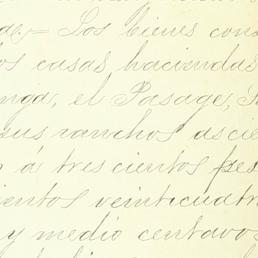 de.= Los bienes cons
os casas haciendas
nga, el Pasage, S
sus ranchos ascie
n á tres cientos pes
ientos veinticuatr
y medio centavos